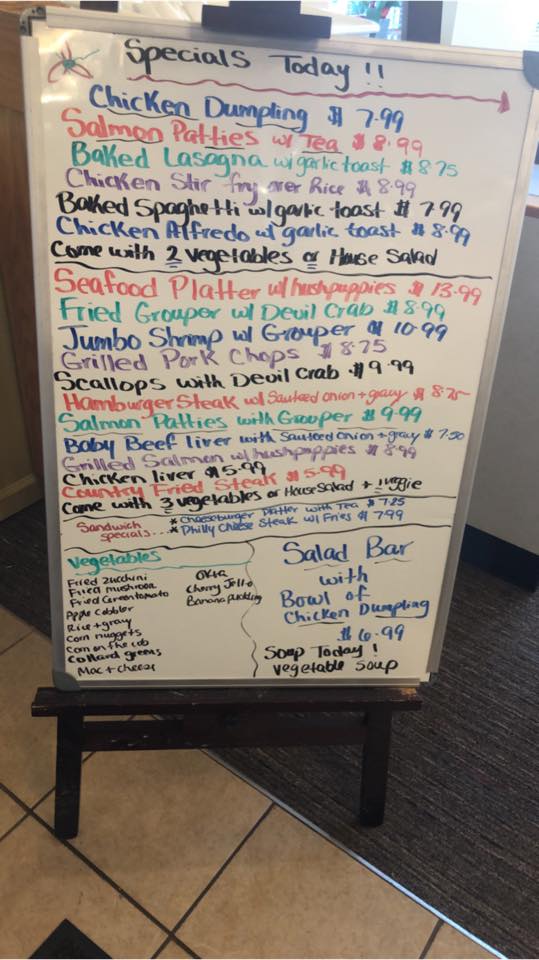 Specials Today !!
Chicken Dumpling $ 7.99
Salmon Patties w/ Tea $ 8.99
Baked Lasagna w/ garlic toast $ 8.75
Chicken Stir fry over Rice $ 8.99
Baked Spaghetti w/ garlic toast $ 7.99
Chicken Alfredo w/ garlic toast $ 8.99
Come with 2 vegetables or House Salad
Seafood Platter w/ hushpuppies $ 13.99
Fried Grouper w/ Devil Crab $ 8.99
Jumbo Shrimp w/ Grouper $ 10.99
Grilled Pork Chops $ 8.75
Scallops with Devil Crab $ 9.99
Hamburger Steak w/ Sauteed onion + gravy $ 8.75
Salmon Patties with Grouper $ 9.99
Baby Beef liver with Sauteed onion + gravy $ 7.50
Grilled Salmon w/ hushpuppies $ 8.99
Chicken liver $ 5.99
Country Fried Steak $ 5.99
Come with 3 vegetables or House Salad + 1 veggie
Sandwich specials....
* Cheeseburger Platter with Tea $ 7.25
* Philly Cheese Steak w/ Fries $ 7.99
Vegetables
Fried zucchini
Fried mushroom
Fried Greentomato
Apple Cobbler
Rice + gravy
Corn nuggets
Corn on the cob
Collard greens
Mac + cheese
Okra
Cherry Jello
Banana pudding
Salad Bar
with
Bowl of
Chicken Dumpling
$ 6.99
Soup Today !
Vegetable Soup